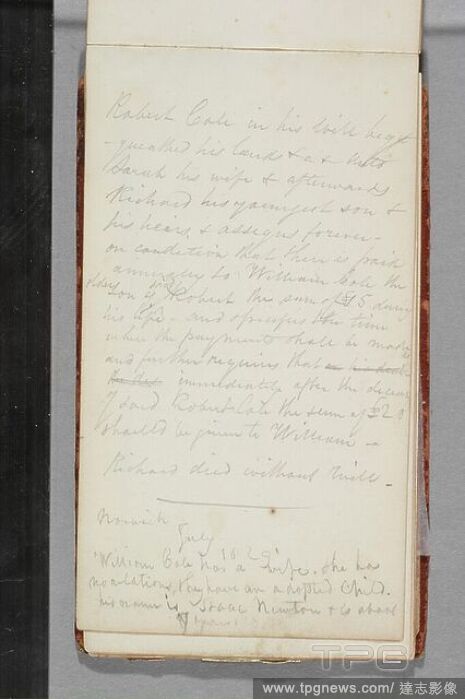 Robert Cole in his Will beq
-queathed his land & a & unto
Sarah his wife & afterwards
Richard his youngest son &
his heirs & assigns forever -
on condition that there is paid
annually to William Cole the
eldest son of Robert the sum of £5 during
his life - and specifies the time
when the payment shall be made
and further requires that
immediately after the decease
of said Robert Cole the sum of £20
should be given to William -
Richard died without Will -
Norwich
July
1820
William Cole has a wife. She has
no relations, they have an adopted Child.
his name is Isaac Newton & is about
7 years
TPG
www.tpgnews.com/達志影像